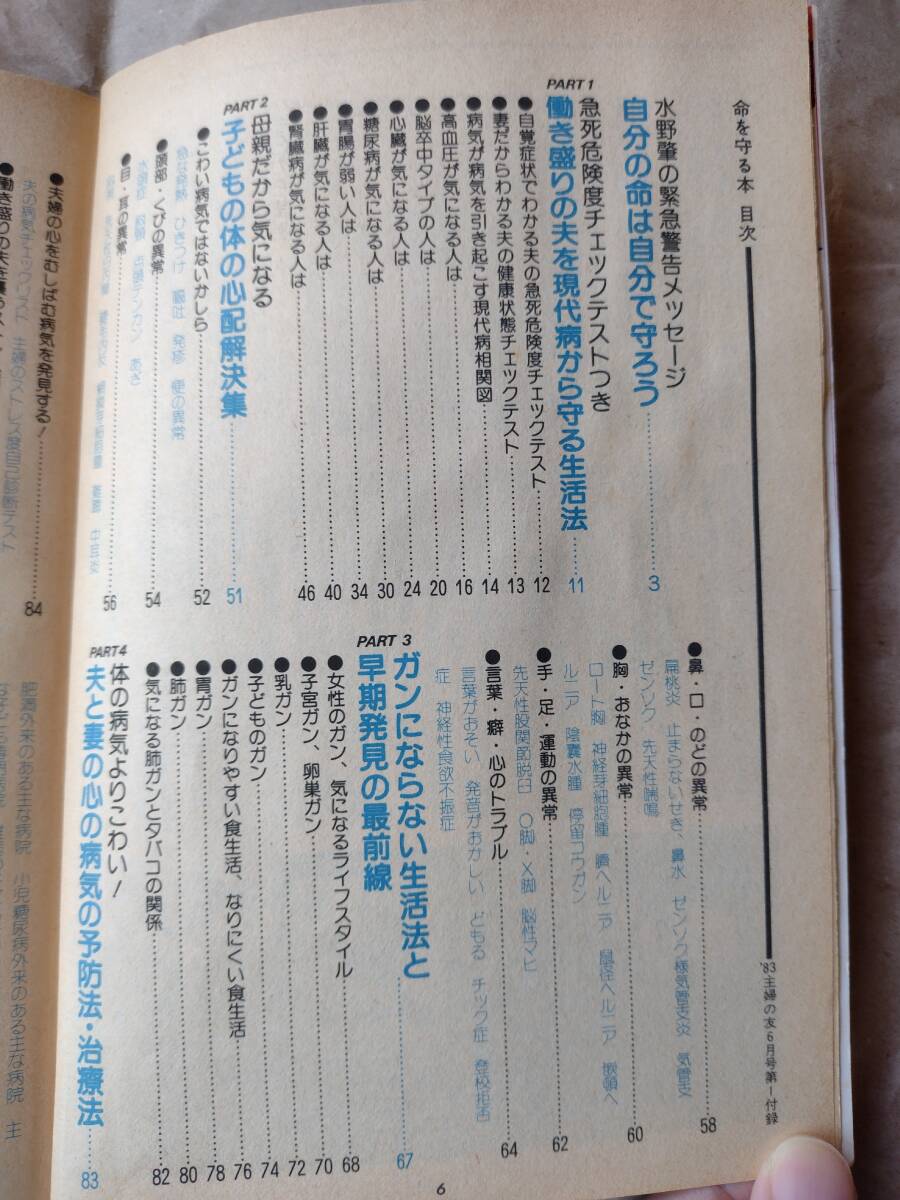 命を守る本 目次
'83主婦の友6月号第一付録
水野肇の緊急警告メッセージ
自分の命は自分で守ろう 3
PART1
急死危険度チェックテストつき
働き盛りの夫を現代病から守る生活法 11
●自覚症状でわかる夫の急死危険度チェックテスト 12
●妻だからわかる夫の健康状態チェックテスト 13
●病気が病気を引き起こす現代病相関図 14
●高血圧が気になる人は 16
●脳卒中タイプの人は 20
●心臓が気になる人は 24
●糖尿病が気になる人は 30
●胃腸が弱い人は 34
●肝臓が気になる人は 40
●腎臓病が気になる人は 46
PART2
母親だから気になる
子どもの体の心配解決集 51
●こわい病気ではないかしら 52
急な発熱 ひきつけ 嘔吐 発疹 便の異常
●頭部・くびの異常 54
水頭症 斜頸 点頭テンカン あざ
●目・耳の異常 56
中耳炎
●鼻・口・のどの異常 58
扁桃炎 止まらないせき、鼻水 ゼンソク様気管支炎 気管支
ゼンソク 先天性喘鳴
●胸・おなかの異常 60
ロート胸 神経芽細胞腫 臍ヘルニア 鼠径ヘルニア 嵌頓ヘ
ルニア 陰嚢水腫 停留コウガン
●手・足・運動の異常 62
先天性股関節脱臼 O脚・X脚 脳性マヒ
●言葉・癖・心のトラブル 64
言葉がおそい、発音がおかしい どもる チック症 登校拒否
症 神経性食欲不振症
PART3
ガンにならない生活法と
早期発見の最前線 67
●女性のガン、気になるライフスタイル 68
●子宮ガン、卵巣ガン 70
●乳ガン 72
●子どものガン 74
●ガンになりやすい食生活、なりにくい食生活 76
●胃ガン 78
●肺ガン 80
●気になる肺ガンとタバコの関係 82
PART4
体の病気よりこわい！
夫と妻の心の病気の予防法・治療法 83
6
●夫婦の心をむしばむ病気を発見する！ 84
夫の病気チェックリスト 主婦のストレス度自己診断テスト
●働き盛りの夫を襲う
肥満外来のある主な病院 小児糖尿病外来のある主な病院 主